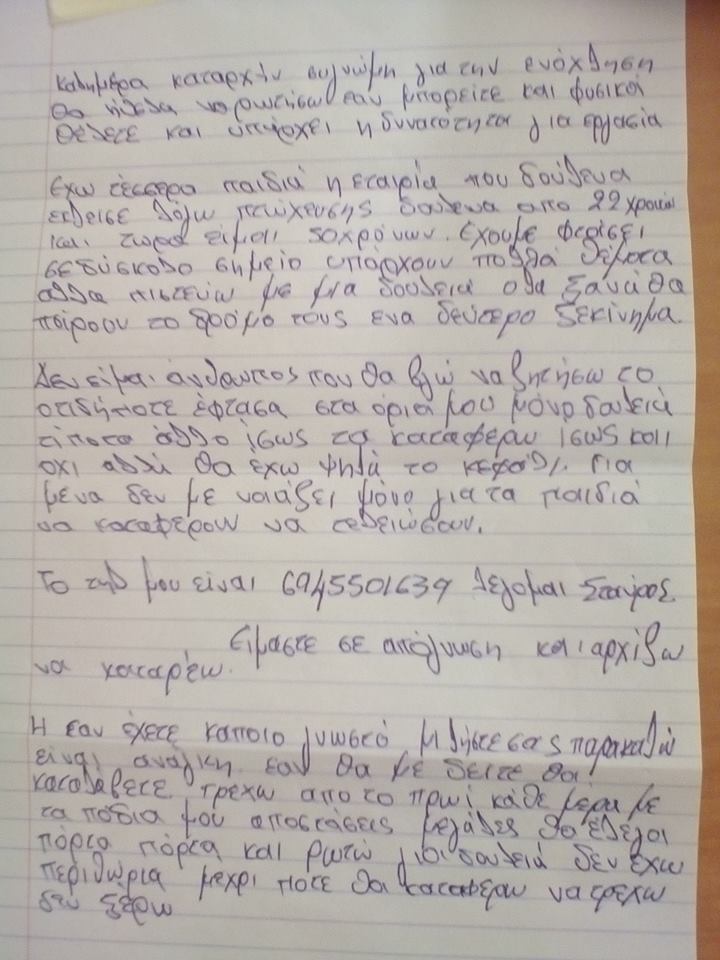 καλημέρα καταρχήν συγνώμη για την ενόχληση
θα ήθελα να ρωτήσω εαν μπορείτε και φυσικά
θέλετε και υπάρχει η δυνατότητα για εργασία
Έχω τέσσερα παιδιά η εταιρία που δούλευα
έκλεισε λόγω πτώχευσης δούλευα απο 22 χρονών
και τώρα είμαι 50χρόνων. Έχουμε φτάσει
σε δύσκολο σημείο υπάρχουν πολλά θέματα
αλλα πιστεύω με μια δουλεια ολα ξανά θα
πάρουν το δρόμο τους ενα δεύτερο ξεκίνημα.
Δεν είμαι άνθρωπος που θα βγώ να ζητήσω το
οτιδήποτε έφτασα στα όρια μου μόνο δουλειά
τίποτα άλλο ίσως τα καταφέρω ίσως και
οχι αλλά θα έχω ψηλά το κεφάλι. Για
μένα δεν με νοιάζει μόνο για τα παιδιά
να καταφέρουν να τελειώσουν.
Το τηλ μου είναι 6945501639 Λέγομαι Σταύρος
Είμαστε σε απόγνωση και αρχίζω
να καταρέω.
Η εαν έχετε κάποιο γνωστό μιλήστε σας παρακαλώ
είναι ανάγκη. εαν θα με δείτε θα
καταλάβετε τρέχω απο το πρωί κάθε μέρα με
τα πόδια μου αποστάσεις μεγάλες θα έλεγα
πόρτα πόρτα και ρωτώ για δουλειά δεν έχω
περιθώρια μεχρι πότε θα καταφέρω να τρέχω
δεν ξέρω